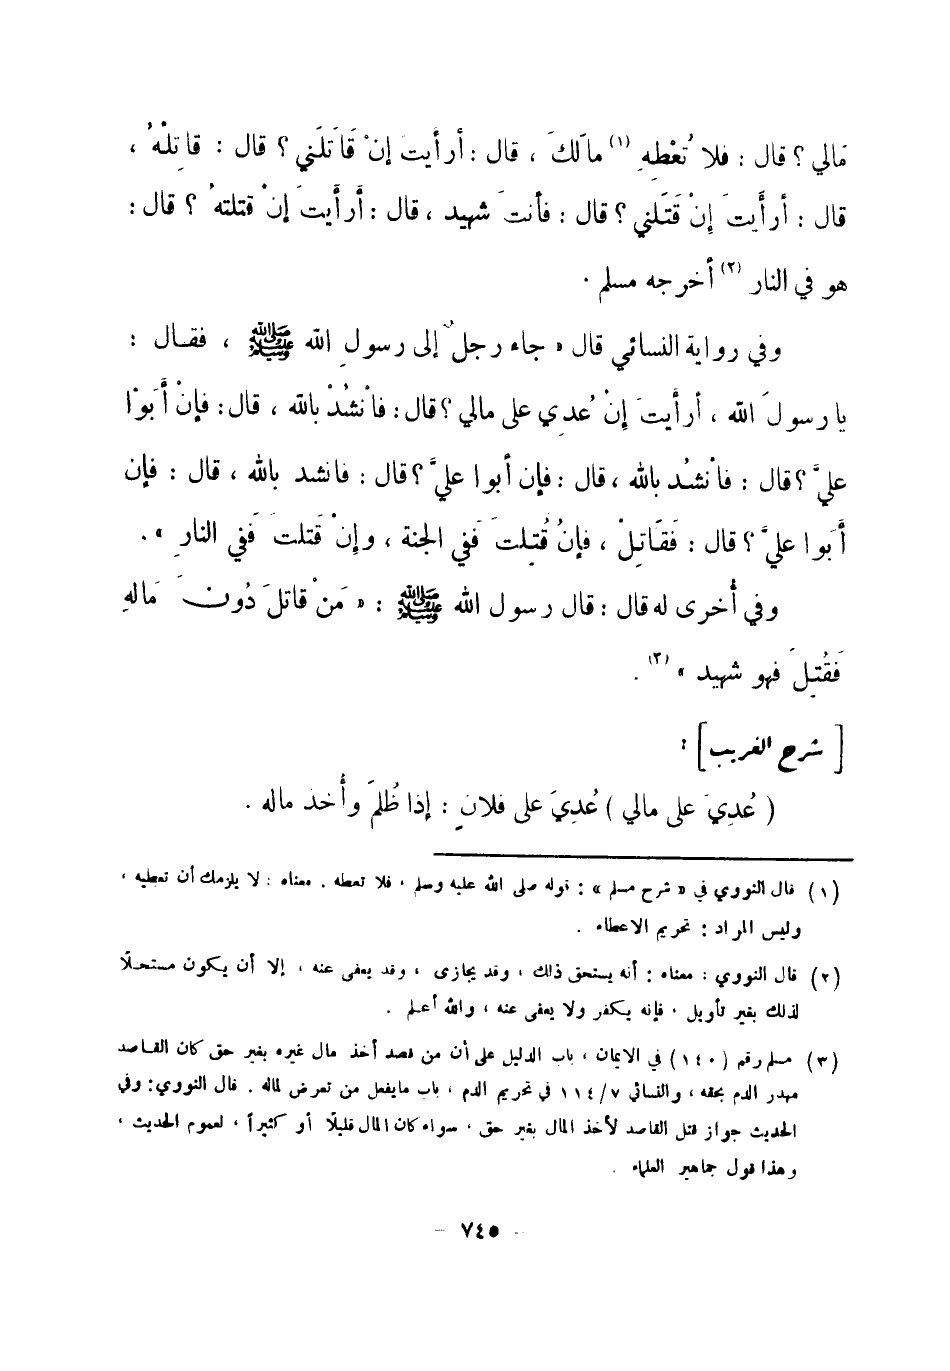 مَالي ؟ قال : فلا تُعْطِهِ (١) مالَكَ ، قال : أرأيتَ إنْ قَاتَلَني ؟ قال : قاتِلْهُ ،
قال : أرأَيتَ إنْ قَتَلني ؟ قال : فأنتَ شهيد ، قال : أَرأَيتَ إنْ قتلتهُ ؟ قال :
هو في النار (٢) أخرجه مسلم .
وفي رواية النسائي قال « جاء رجلٌ إلى رسولِ الله ﷺ ، فقال :
يا رسولَ الله ، أرأَيتَ إنْ عُدِي على مالي ؟ قال : فانْشُدْ بالله ، قال : فإنْ أَبَوْا
عليَّ ؟ قال : فانْشُد بالله ، قال : فإن أبوا عليَّ ؟ قال : فانشد بالله ، قال : فإن
أَبَوا عليَّ ؟ قال : فَقَاتِلْ ، فإنْ قُتِلتَ فَفي الجنة ، وإنْ قَتلتَ فَفي النارِ » .
وفي أُخرى له قال : قال رسول الله ﷺ : « مَنْ قاتلَ دُونَ مَالهِ
فَقُتِلَ فهو شهيد » (٣) .
[ شرح الغريب ] :
( عُدِيَ على مالي ) عُدِيَ على فلانٍ : إذا ظُلمَ وأُخذ ماله .
(١) قال النووي في « شرح مسلم » : قوله صلى الله عليه وسلم ، فلا تعطه . معناه : لا يلزمك أن تعطيه ،
وليس المراد : تحريم الاعطاء .
(٢) قال النووي : معناه : أنه يستحق ذلك ، وقد يجازى ، وقد يعفى عنه ، إلا أن يكون مستحلًا
لذلك بغير تأويل ، فإنه يكفر ولا يعفى عنه ، والله أعلم .
(٣) مسلم رقم (١٤٠) في الايمان ، باب الدليل على أن من قصد أخذ مال غيره بغير حق كان القاصد
مهدر الدم بحقه ، والنسائي ١١٤/٧ في تحريم الدم ، باب مايفعل من تعرض لماله . قال النووي : وفي
الحديث جواز قتل القاصد لأخذ المال بغير حق ، سواء كان المال قليلًا أو كثيراً ، لعموم الحديث ،
وهذا قول جماهير العلماء .
– ٧٤٥ –